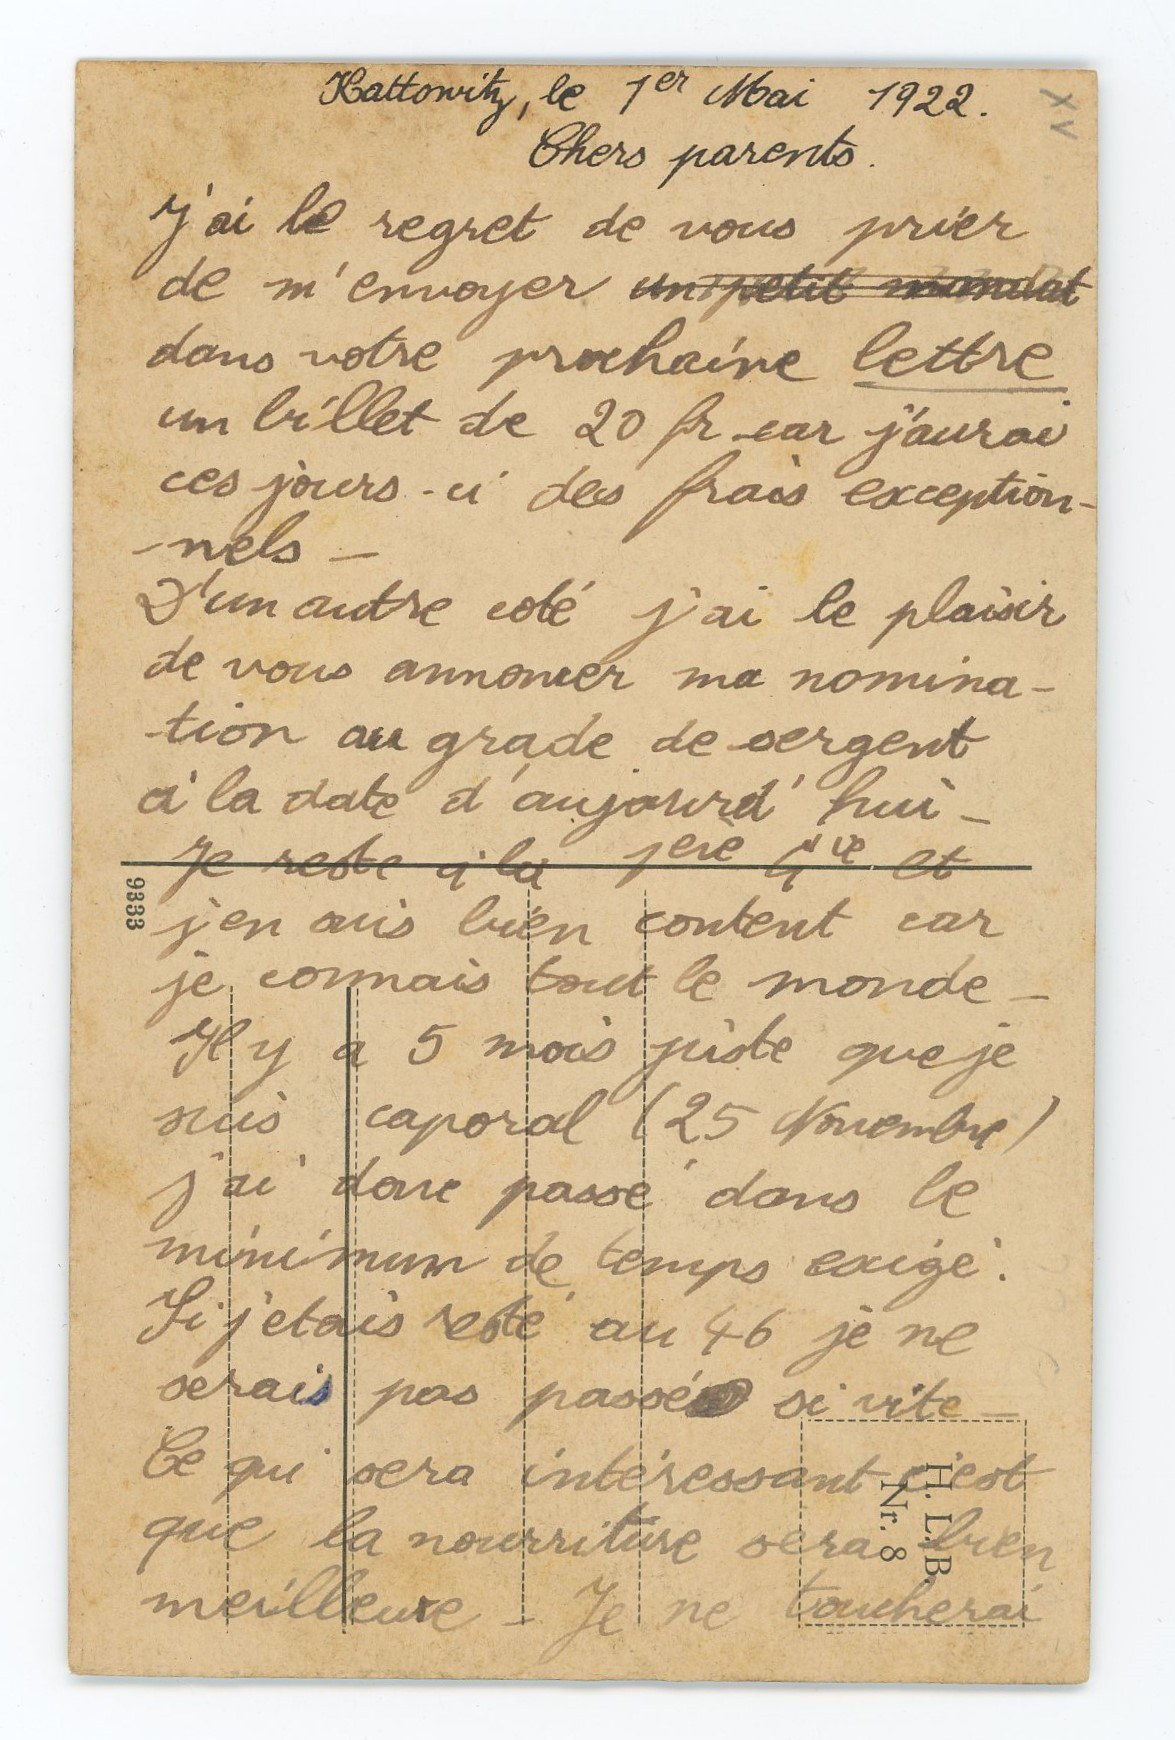 Kattowitz, le 1er Mai 1922.
XV
Chers parents.
J'ai le regret de vous prier
de m'envoyer un petit mandat
dans votre prochaine lettre
un billet de 20 fr. car j'aurai
ces jours-ci des frais exception-
-nels -
D'un autre coté j'ai le plaisir
de vous annoncer ma nomina-
-tion au grade de sergent
à la date d'aujourd'hui -
Je reste à la 1ere Cie et
9333
j'en suis bien content car
je connais tout le monde -
Il y a 5 mois juste que je
suis caporal (25 Novembre)
j'ai donc passé dans le
minimum de temps exigé.
Si j'etais resté au 46 je ne
serais pas passé si vite -
Ce qui sera intéressant c'est
que la nourriture sera bien
meilleure - Je ne toucherai
H. L. B.
Nr. 8